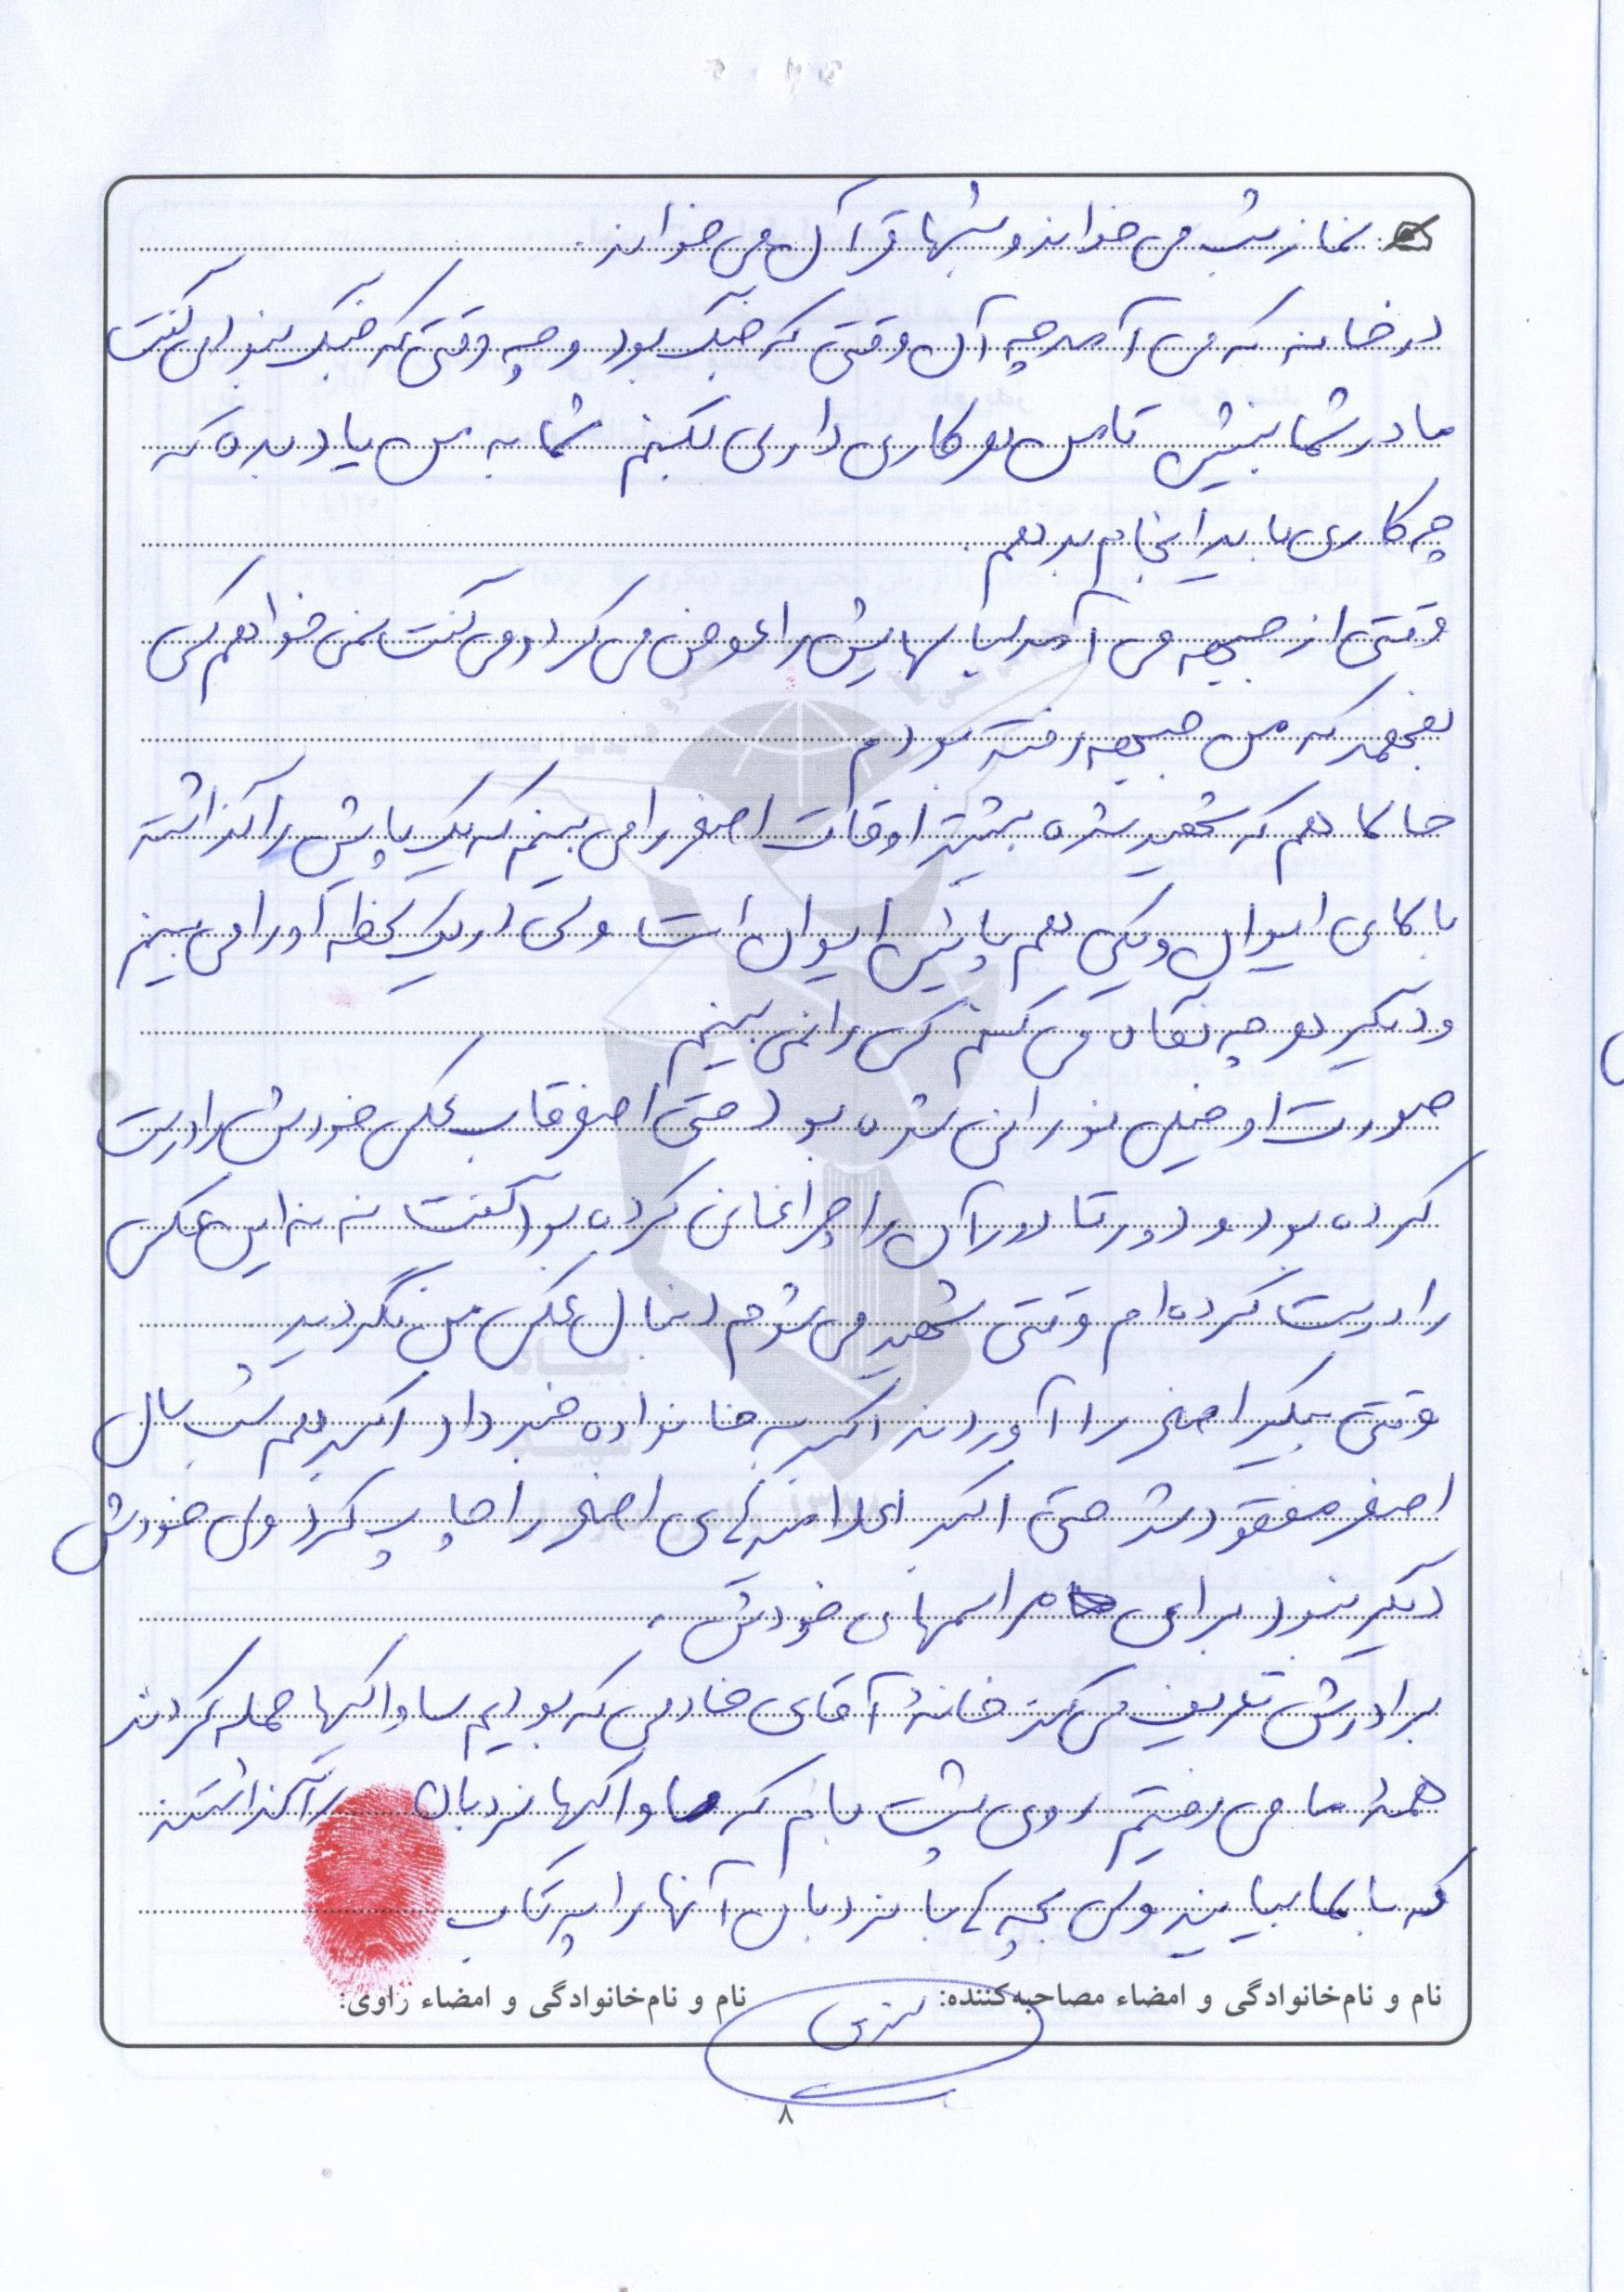 نماز شب می خواند و شبها قرآن می خواند.
در خانه که می آمد چه آن وقتی که جنگ بود و چه وقتی که جنگ نبود می گفت
مادر شما بنشین تا من هر کاری داری بکنم شما به من یاد بده که
چه کاری باید انجام بدهم.
وقتی از جبهه می آمد لباسهایش را عوض می کرد و می گفت نمی خواهم کسی
بفهمد که من جبهه رفته بودم
حالا هم که شهید شده بیشتر اوقات اصغر را می بینم که یک پایش را گذاشته
بالای ایوان و یکی هم پائین ایوان است ولی در یک لحظه او را می بینم
و دیگر هر چه نگاه می کنم کسی را نمی بینم
صورت او خیلی نورانی شده بود حتی اصغر قاب عکس خودش را درست
کرده بود و دور تا دور آن را چراغانی کرده بود گفت ننه این عکس
را درست کرده ام وقتی شهید می شوم دنبال عکس من نگردید
وقتی پیکر اصغر را آوردند اکبر به خانواده خبر داد اکبر هم شب سال
اصغر مفقود شد حتی اکبر اعلامیه های اصغر را چاپ کرد ولی خودش
دیگر نبود برای مراسمهای خودش.
برادرش تعریف می کند خانهٔ آقای خادمی که بودیم ساواکیها حمله کردند
همهٔ ما می رفتیم روی پشت بام که ساواکیها نردبان را گذاشتند
که بالا بیایند ولی بچه ها با نردبان آنها را پرتاب
نام و نام‌خانوادگی و امضاء مصاحبه‌کننده: نام و نام‌خانوادگی و امضاء راوی:
۸